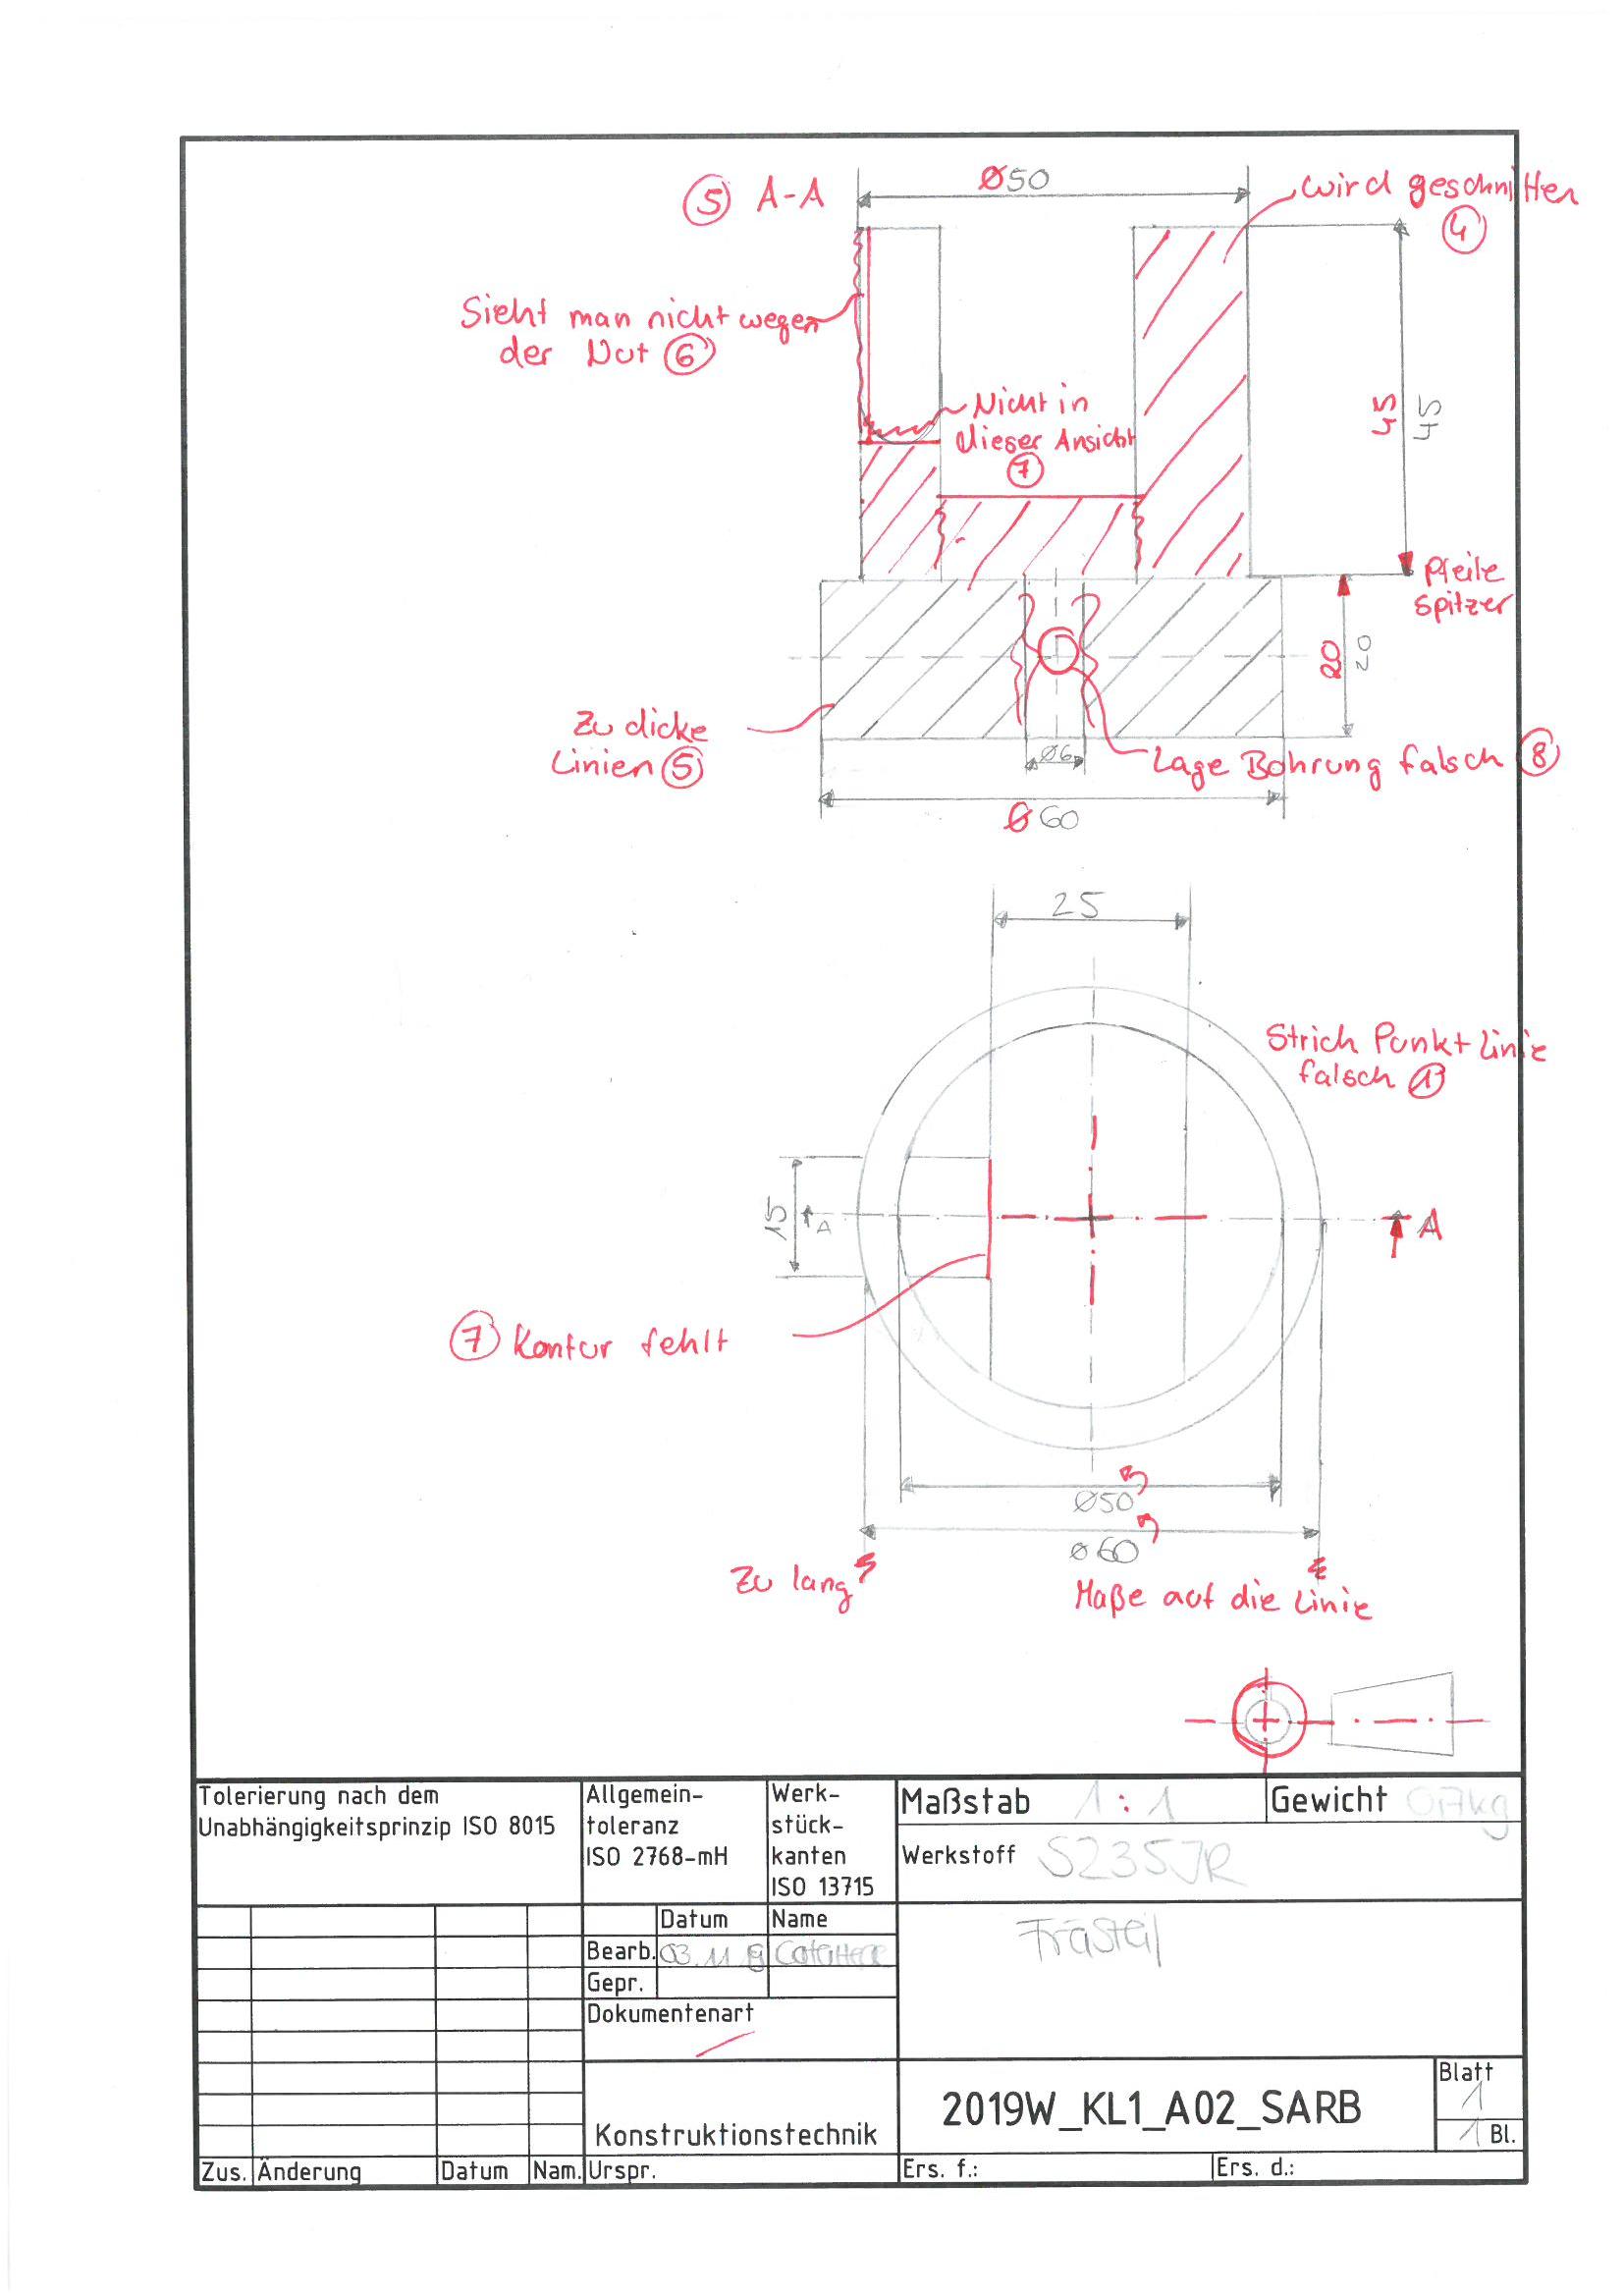 ⑤ A-A
Ø50
wird geschnitten
④
Sieht man nicht wegen
der Nut ⑥
Nicht in
dieser Ansicht
⑦
45
45
Pfeile
spitzer
20
20
Zu dicke
Linien ⑤
Ø6
Lage Bohrung falsch ⑧
Ø60
25
Strich Punkt Linie
falsch ⑬
15
A
A
⑦ Kontur fehlt
Ø50
Ø60
Zu lang
Maße auf die Linie
Tolerierung nach dem
Unabhängigkeitsprinzip ISO 8015
Allgemein-
toleranz
ISO 2768-mH
Werk-
stück-
kanten
ISO 13715
Maßstab 1:1
Gewicht
Werkstoff S235JR
Datum
Name
Bearb. 03.11.
Gepr.
Frästeil
Dokumentenart
Konstruktionstechnik
2019W_KL1_A02_SARB
Blatt
1
1 Bl.
Zus. Änderung Datum Nam. Urspr. Ers. f.: Ers. d.: